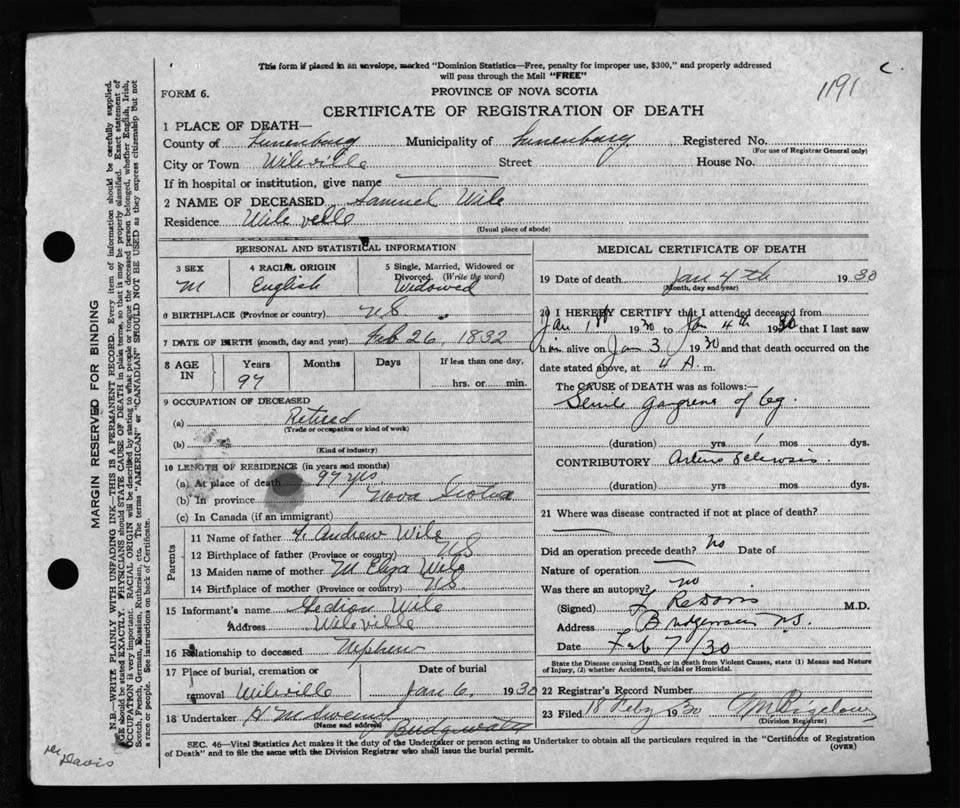 This form if placed in an envelope, marked "Dominion Statistics—Free, penalty for improper use, $300," and properly addressed
will pass through the Mail "FREE"
1191 c.
FORM 6.
PROVINCE OF NOVA SCOTIA
CERTIFICATE OF REGISTRATION OF DEATH
1 PLACE OF DEATH—
County of Lunenburg Municipality of Lunenburg Registered No.
(For use of Registrar General only)
City or Town Wileville Street House No.
If in hospital or institution, give name
2 NAME OF DECEASED Samuel Wile
Residence Wile ville
(Usual place of abode)
PERSONAL AND STATISTICAL INFORMATION
3 SEX
M
4 RACIAL ORIGIN
English
5 Single, Married, Widowed or
Divorced. (Write the word)
Widowed
6 BIRTHPLACE (Province or country) N.S.
7 DATE OF BIRTH (month, day and year) Feb 26, 1832
8 AGE
IN
Years
97
Months
Days
If less than one day,
hrs. or min.
9 OCCUPATION OF DECEASED
(a) Retired
(Trade or occupation or kind of work)
(b)
(Kind of industry)
10 LENGTH OF RESIDENCE (in years and months)
(a) At place of death 97 yrs
(b) In province Nova Scotia
(c) In Canada (if an immigrant)
Parents
11 Name of father Andrew Wile
12 Birthplace of father (Province or country) N S
13 Maiden name of mother M Eliza Wile
14 Birthplace of mother (Province or country) N.S.
15 Informant's name Gedion Wile
Address Wileville
16 Relationship to deceased Nephew
17 Place of burial, cremation or Date of burial
removal Wileville Jan 6 1930
18 Undertaker H M
(Name and address)
Bridgewater
MEDICAL CERTIFICATE OF DEATH
19 Date of death Jan 4th 1930
(Month, day and year)
20 I HEREBY CERTIFY that I attended deceased from
Jan 1st 1930 to Jan 4th 1930 that I last saw
him alive on Jan 3 1930 and that death occurred on the
date stated above, at 4 A. m.
The CAUSE of DEATH was as follows:—
Senile gangrene of leg.
(duration) yrs 1 mos dys.
CONTRIBUTORY Arterio Sclerosis.
(duration) yrs mos dys.
21 Where was disease contracted if not at place of death?
Did an operation precede death? No Date of
Nature of operation
Was there an autopsy? no
(Signed) M.D.
Address Bridgewater N.S.
Date Feb 7/30
State the Disease causing Death, or in death from Violent Causes, state (1) Means and Nature
of Injury, (2) whether Accidental, Suicidal or Homicidal.
22 Registrar's Record Number
23 Filed 18 Feby 1930
(Division Registrar)
SEC. 46—Vital Statistics Act makes it the duty of the Undertaker or person acting as Undertaker to obtain all the particulars required in the "Certificate of Registration
of Death" and to file the same with the Division Registrar who shall issue the burial permit.
(OVER)
MARGIN RESERVED FOR BINDING
N.B.—WRITE PLAINLY WITH UNFADING INK—THIS IS A PERMANENT RECORD. Every item of information should be carefully supplied.
AGE should be stated EXACTLY. PHYSICIANS should STATE CAUSE OF DEATH in plain terms, so that it may be properly classified. Exact statement of
OCCUPATION is very important. RACIAL ORIGIN will be described by stating to what people or tongue the deceased person belonged, whether English, Irish,
Scotch, French, German, Russian, Ruthenian, etc. The terms "AMERICAN" or "CANADIAN" SHOULD NOT BE USED as they express citizenship but not
a race or people. See instructions on back of Certificate.
Davis